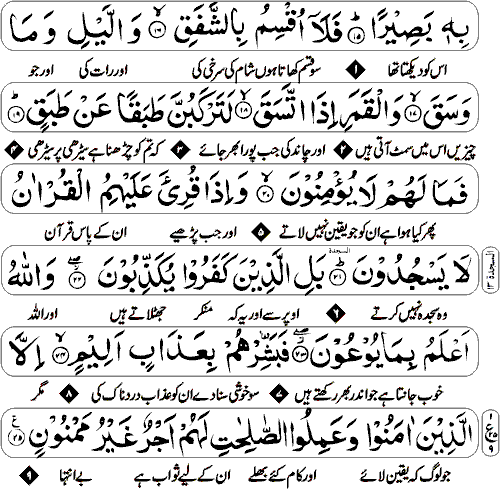 بِهٖ بَصِيْرًا ؕ﴿۱۵﴾ فَلَاۤ اُقْسِمُ بِالشَّفَقِ ۙ﴿۱۶﴾ وَالَّيْلِ وَمَا
اس کو دیکھتا تھا ۱ سو قسم کھاتا ہوں شام کی سرخی کی اور رات کی اور جو
وَسَقَ ۙ﴿۱۷﴾ وَالْقَمَرِ اِذَا اتَّسَقَ ۙ﴿۱۸﴾ لَتَرْكَبُنَّ طَبَقًا عَنْ طَبَقٍ ؕ﴿۱۹﴾
چیزیں اس میں سمٹ آتی ہیں ۲ اور چاند کی جب پورا بھر جائے ۳ کہ تم کو چڑھنا ہے سیڑھی پر سیڑھی ۴
فَمَا لَهُمْ لَا يُؤْمِنُوْنَ ۙ﴿۲۰﴾ وَاِذَا قُرِئَ عَلَيْهِمُ الْقُرْاٰنُ
پھر کیا ہوا ہے ان کو جو یقین نہیں لاتے ۵ اور جب پڑھیے ان کے پاس قرآن
لَا يَسْجُدُوْنَ ؕ﴿۲۱﴾ السجدة بَلِ الَّذِيْنَ كَفَرُوْا يُكَذِّبُوْنَ ۖ﴿۲۲﴾ وَاللّٰهُ
السجدة ۱۳
وہ سجدہ نہیں کرتے ۶ اوپر سے اور یہ کہ منکر جھٹلاتے ہیں اور اللہ
اَعْلَمُ بِمَا يُوْعُوْنَ ۖ﴿۲۳﴾ فَبَشِّرْهُمْ بِعَذَابٍ اَلِيْمٍ ۙ﴿۲۴﴾ اِلَّا
خوب جانتا ہے جو اندر بھر رکھتے ہیں ۷ سو خوشی سنا دے ان کو عذاب دردناک کی ۸ مگر
الَّذِيْنَ اٰمَنُوْا وَعَمِلُوا الصّٰلِحٰتِ لَهُمْ اَجْرٌ غَيْرُ مَمْنُوْنٍ ﴿۲۵﴾
جو لوگ کہ یقین لائے اور کام کئے بھلے ان کے لیے ثواب ہے بے انتہا ۹